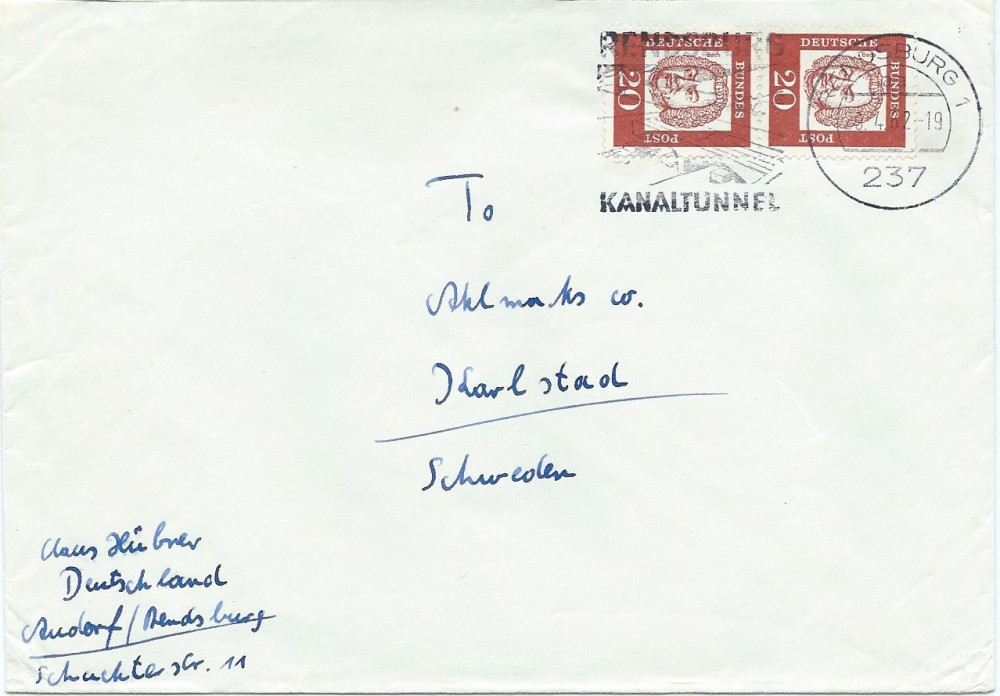 RENDSBURG
DEUTSCHE
BUNDES
POST
20
DEUTSCHE
BUNDES
POST
20
BURG 1
4.62-19
237
KANALTUNNEL
To
Ahlmarks co.
Karlstad
Schweden
Claus Hübner
Deutschland
Audorf/Rendsburg
Schachterstr. 11